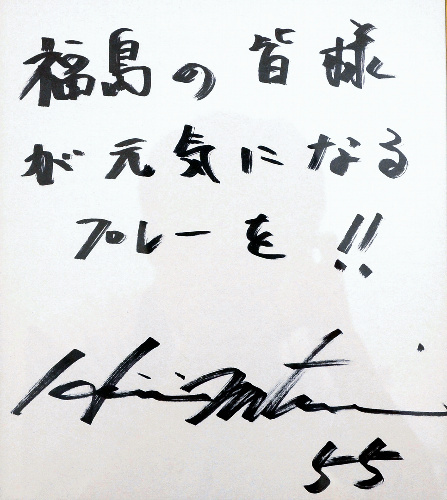 福島の皆様
が元気になる
プレーを!!
55